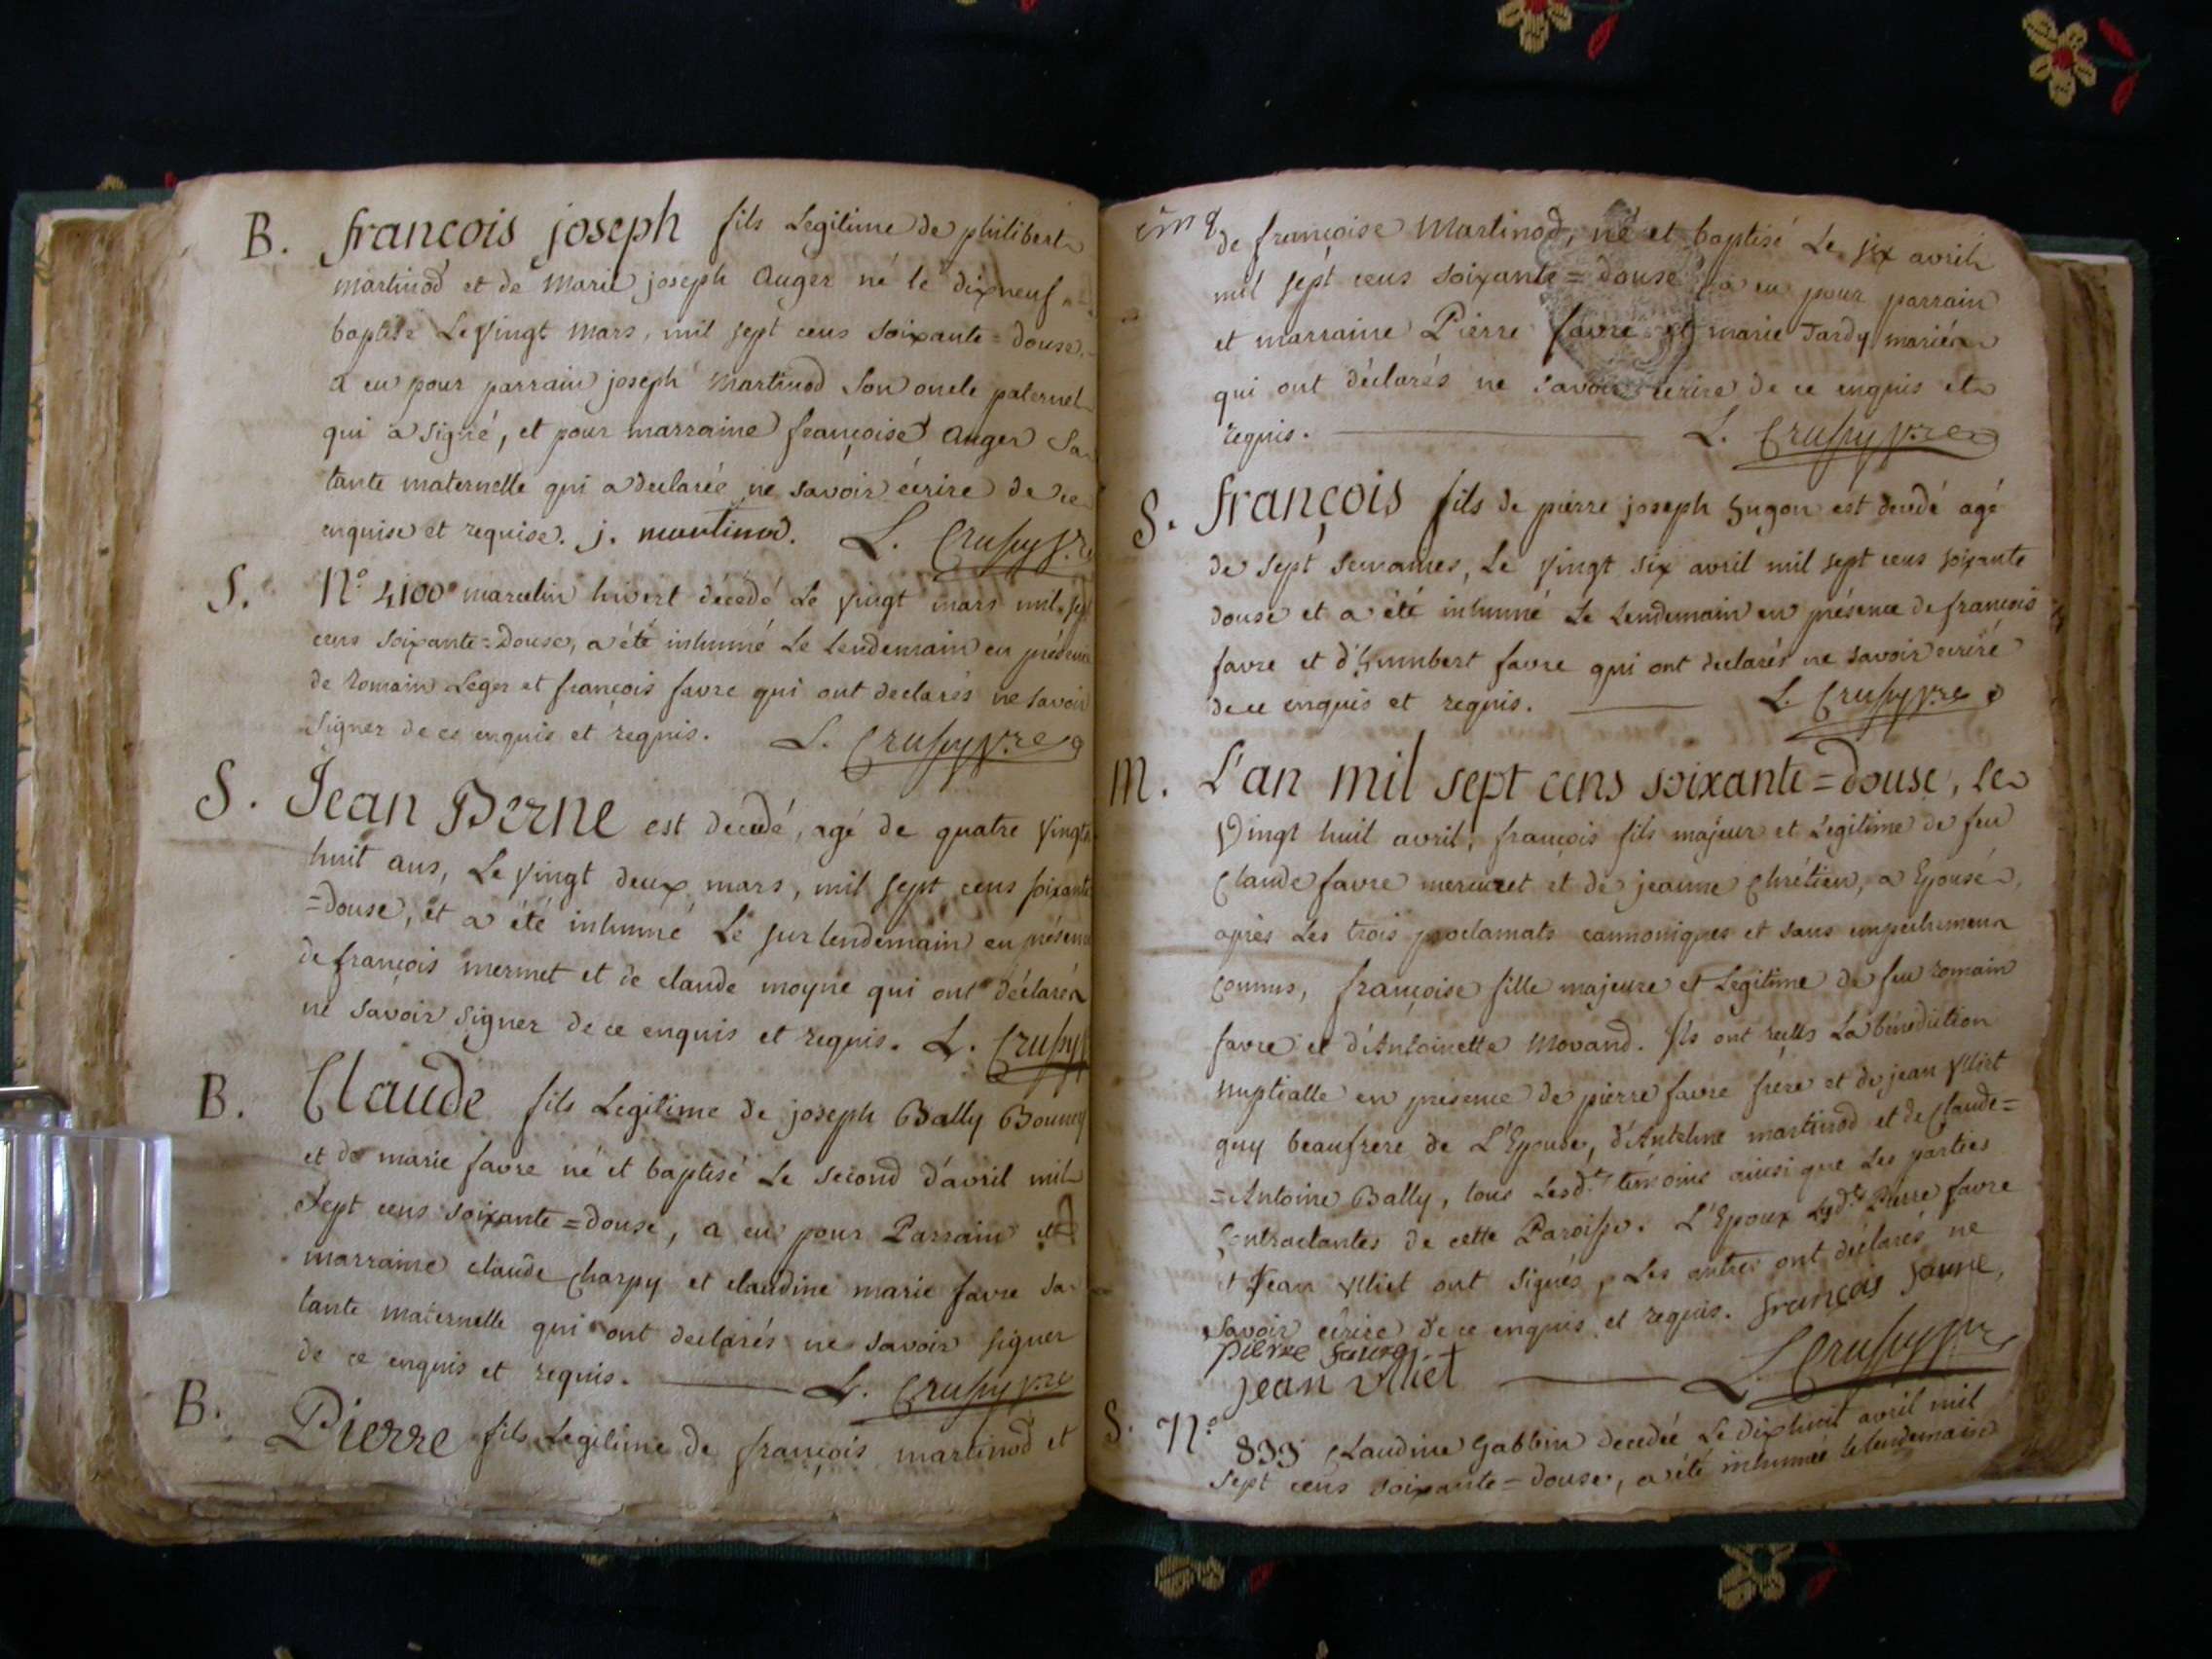 B. francois joseph fils Legitime de philibert
martinod et de Marie joseph Auger né le dixneuf
baptisé Le vingt mars, mil sept cens soixante=douse,
a eu pour parrain joseph Martinod son oncle paternel
qui a signé, et pour marraine françoise Auger sa
tante maternelle qui a declarée ne savoir écrire de ce
enquise et requise. j. martinod. L. Crussy p.re
S. N.o 4100 marcelin hivert décédé Le vingt mars mil sept
cens soixante=Douse, a été inhumé Le Lendemain en présence
de Romain Leger et françois favre qui ont declarés ne savoir
signer de ce enquis et requis. L. Crussy p.re
S. Jean Berne est decedé, agé de quatre vingts
huit ans, Le vingt deux mars, mil sept cens soixante
=douse, et a été inhumé Le surlendemain en présence
de françois mermet et de claude moyne qui ont déclarés
ne savoir signer de ce enquis et requis. L. Crussy
B. Claude fils Legitime de joseph Bally
et de marie favre né et baptisé Le second d'avril mil
Sept cens soixante=douse, a eu pour Parrain et
marraine claude Charpy et claudine marie favre sa
tante maternelle qui ont declarés ne savoir signer
de ce enquis et requis. L. Crussy p.re
B. Pierre fils Legitime de françois martinod et
cinq
de françoise Martinod, né et baptisé Le six avril
mil sept cens soixante=douse a eu pour parrain
et marraine Pierre favre et marie Tardy mariés
qui ont déclarés ne savoir écrire de ce enquis et
requis. L. Crussy p.re
S. françois fils de pierre joseph hugon est decedé agé
de sept semaines, Le vingt six avril mil sept cens soixante
douse et a été inhumé Le Lendemain en présence de françois
favre et d'humbert favre qui ont declarés ne savoir écrire
de ce enquis et requis. L. Crussy p.re
M. L'an mil sept cens soixante=douse, Le
Vingt huit avril, françois fils majeur et Legitime de feu
Claude favre et de jeanne Chrétien, a Epousé,
après Les trois proclamats cannoniques et sans empêchement
Connus, françoise fille majeure et Legitime de feu romain
favre et d'Antoinette Morand. Ils ont La bénédiction
nuptialle en présence de pierre favre frère et de jean Ulliet
guy beaufrere de L'Epouse, d'Antelme martinod et de Claude=
=Antoine Bally, tous Lesd.ts témoins ainsi que Les parties
Contractantes de cette Paroisse. L'Epoux Lesd.ts Pierre favre
et Jean Ulliet ont signés, Les autres ont déclarés ne
savoir écrire de ce enquis et requis. françois favre,
pierre favre
jean ulliet L. Crussy p.re
S. N.o 833 Claudine Gabbin decedée Le dixhuit avril mil
sept cens soixante=douse, a été inhumée le lendemain